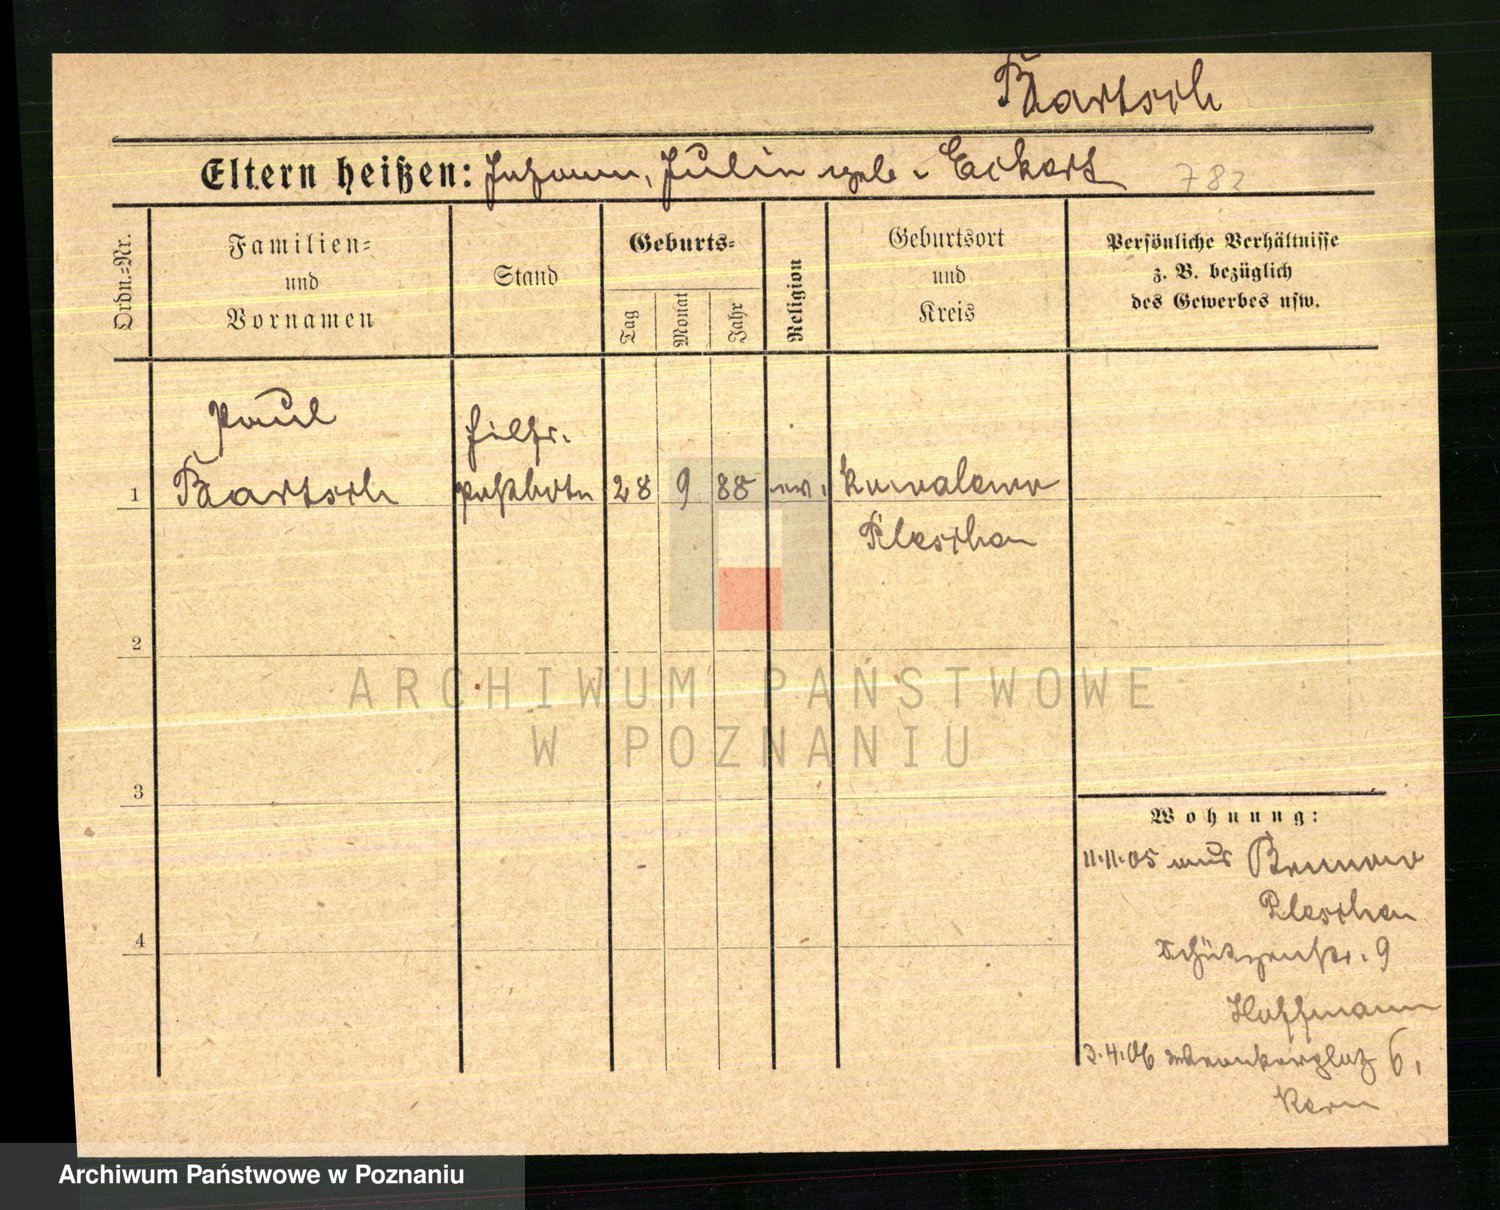 Bartsch
Eltern heißen: Johann, Julia geb. Eckert 782
Ordn.=Nr.
Familien=
und
Vornamen
Stand
Geburts=
Tag
Monat
Jahr
Religion
Geburtsort
und
Kreis
Persönliche Verhältnisse
z. B. bezüglich
des Gewerbes usw.
Paul
1 Bartsch
postbote
28 9 88 ev.
Kowalewo
Pleschen
2
3
4
ARCHIWUM PAŃSTWOWE
W POZNANIU
Wohnung:
11.11.05 aus
Pleschen
Schützenstr. 9
Hoffmann
3.4.06 6,
Kern
Archiwum Państwowe w Poznaniu